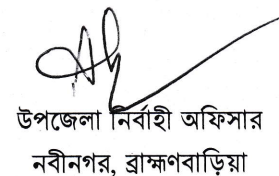 উপজেলা নির্বাহী অফিসার
নবীনগর, ব্রাহ্মণবাড়িয়া